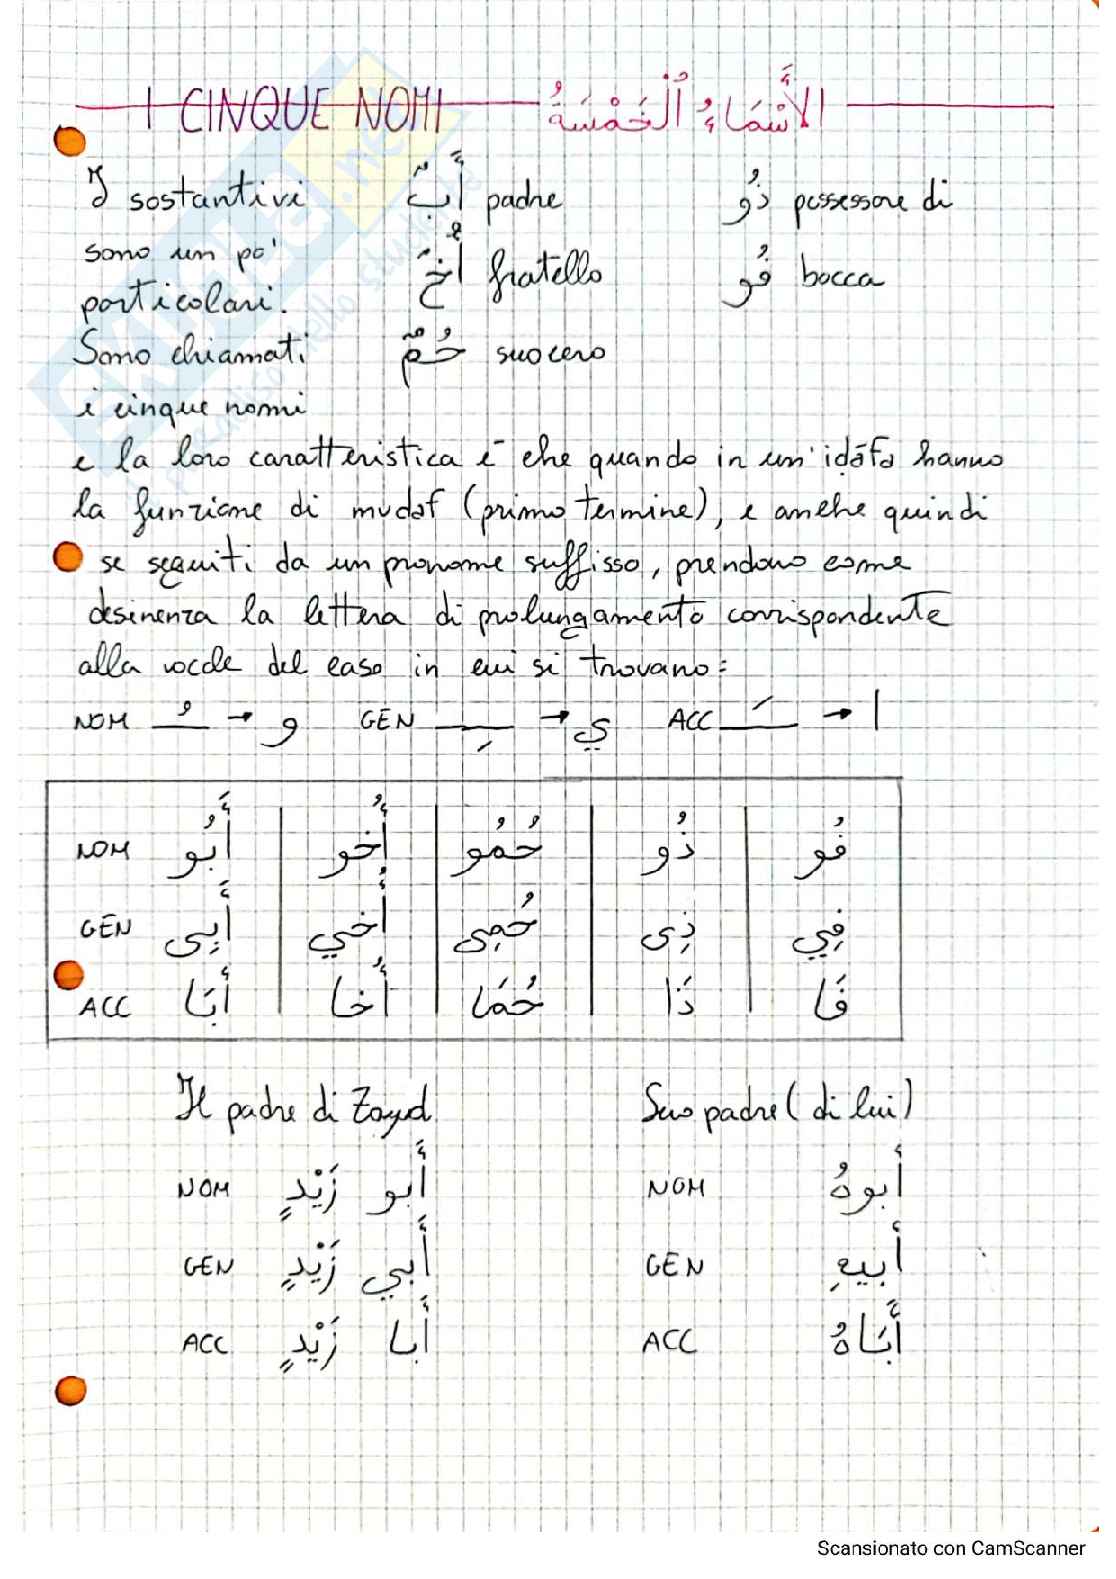 I CINQUE NOMI الأَسْمَاءُ ٱلْخَمْسَةُ
I sostantivi أَبٌ padre ذُو possessore di
sono un po' أَخٌ fratello فُو bocca
particolari.
Sono chiamati حُمٌ suocero
i cinque nomi
e la loro caratteristica è che quando in un'idāfa hanno
la funzione di mudāf (primo termine), e anche quindi
se seguiti da un pronome suffisso, prendono come
desinenza la lettera di prolungamento corrispondente
alla vocale del caso in cui si trovano:
NOM ـُ → و GEN ـِ → ي ACC ـَ → ا
NOM أَبُو أَخُو حُمُو ذُو فُو
GEN أَبِى أَخِي حُمِى ذِى فِي
ACC أَبَا أَخَا حُمَا ذَا فَا
Il padre di Zayd Suo padre (di lui)
NOM أَبو زَيْدٍ NOM أَبوهُ
GEN أَبي زَيْدٍ GEN أَبيهِ
ACC أَبا زَيْدٍ ACC أَبَاهُ
Scansionato con CamScanner